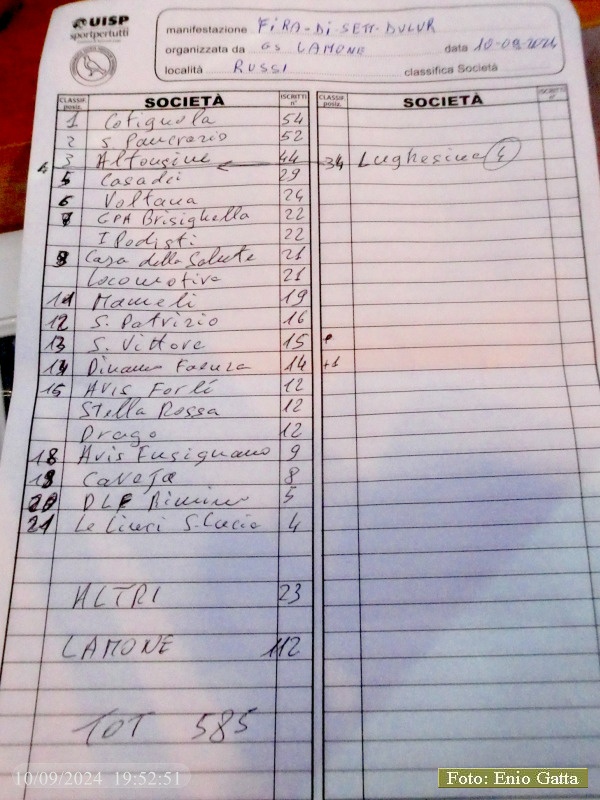 UISP
sportpertutti
manifestazione FIRA-DI-SETT-DULUR
organizzata da GS LAMONE data 10-09-2024
località RUSSI classifica Società
CLASSIF. posiz. SOCIETÀ ISCRITTI n° CLASSIF. posiz. SOCIETÀ ISCRITTI n°
1 Cotignola 54
2 S. Pancrazio 52
3 Alfonsine 44 34 Lughesina 4
4
5 Casadei 29
6 Voltana 24
7 GPA Brisighella 22
I Podisti 22
8 Casa della Salute 21
Locomotiva 21
11 Mameli 19
12 S. Patrizio 16
13 S. Vittore 15
14 Dinamo Faenza 14 +1
15 Avis Forlí 12
Stella Rossa 12
Drago 12
18 Avis Fusignano 9
19 Caveja 8
20 DLF Rimini 5
21 Le Linci S. Lucia 4
ALTRI 23
LAMONE 112
TOT 585
10/09/2024 19:52:51
Foto: Enio Gatta